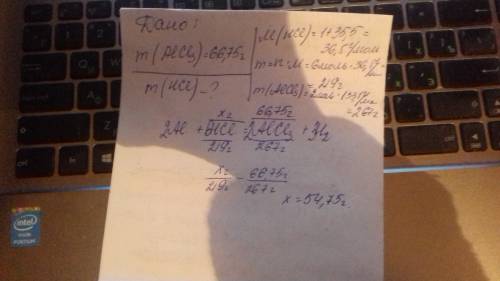 Дано:
m(AlCl₃)=66,75г
m(HCl)-?
M(HCl)=1+35,5=
36,5г/моль
m=n·M=6моль·36,5г/моль
=219г
m(AlCl₃)=2моль·133,5г/моль
=267г
xг 66,75г
2Al + 6HCl = 2AlCl₃ + 3H₂
219г 267г
xг/219г = 66,75г/267г
x=54,75г
intel
inside
PENTIUM